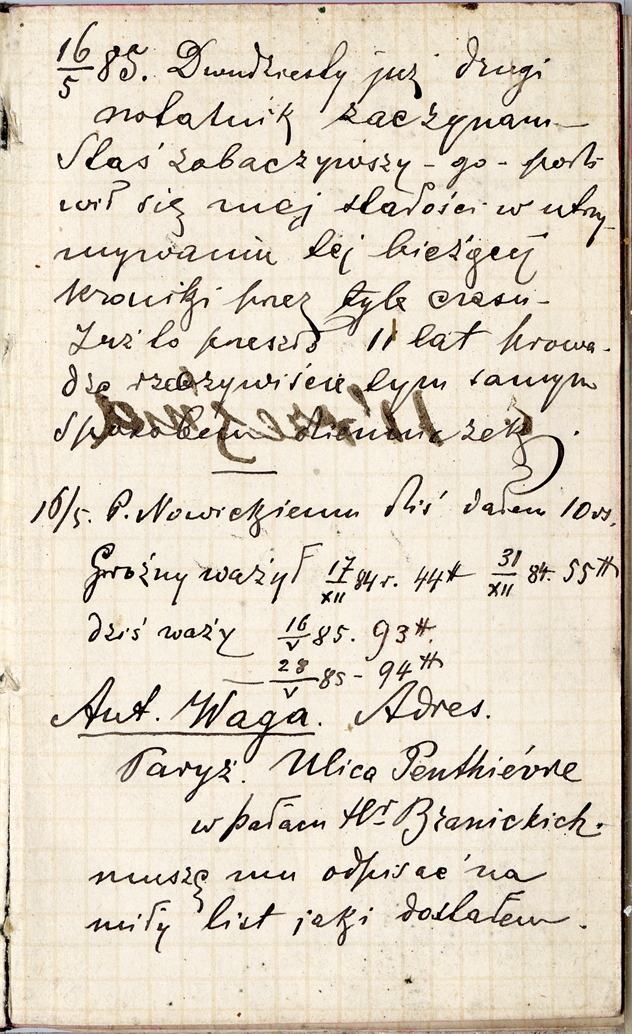 16/5 85. Dwudziesty już drugi
notatnik zaczynam –
Staś zobaczywszy – go – podz
wił się mej stałości w utrzy
mywaniu tej bieżącej
kroniki przez tyle czasu –
Już to przeszło 11 lat prowa-
dzę rzeczywiście tym samym
sposobem dzienniczek.
16/5. P. Nowickiemu dziś dałem 10 rs.
Groźny ważył 17/XII 84 r. 44 ℔ 31/XII 84. 55 ℔
dziś waży 16/V 85. 93 ℔.
— 28/V 85 – 94 ℔
Ant. Waga. Adres.
Paryż. Ulica Penthiévre
w pałacu Hr Branickich.
muszę mu odpisać na
miły list jaki dostałem.